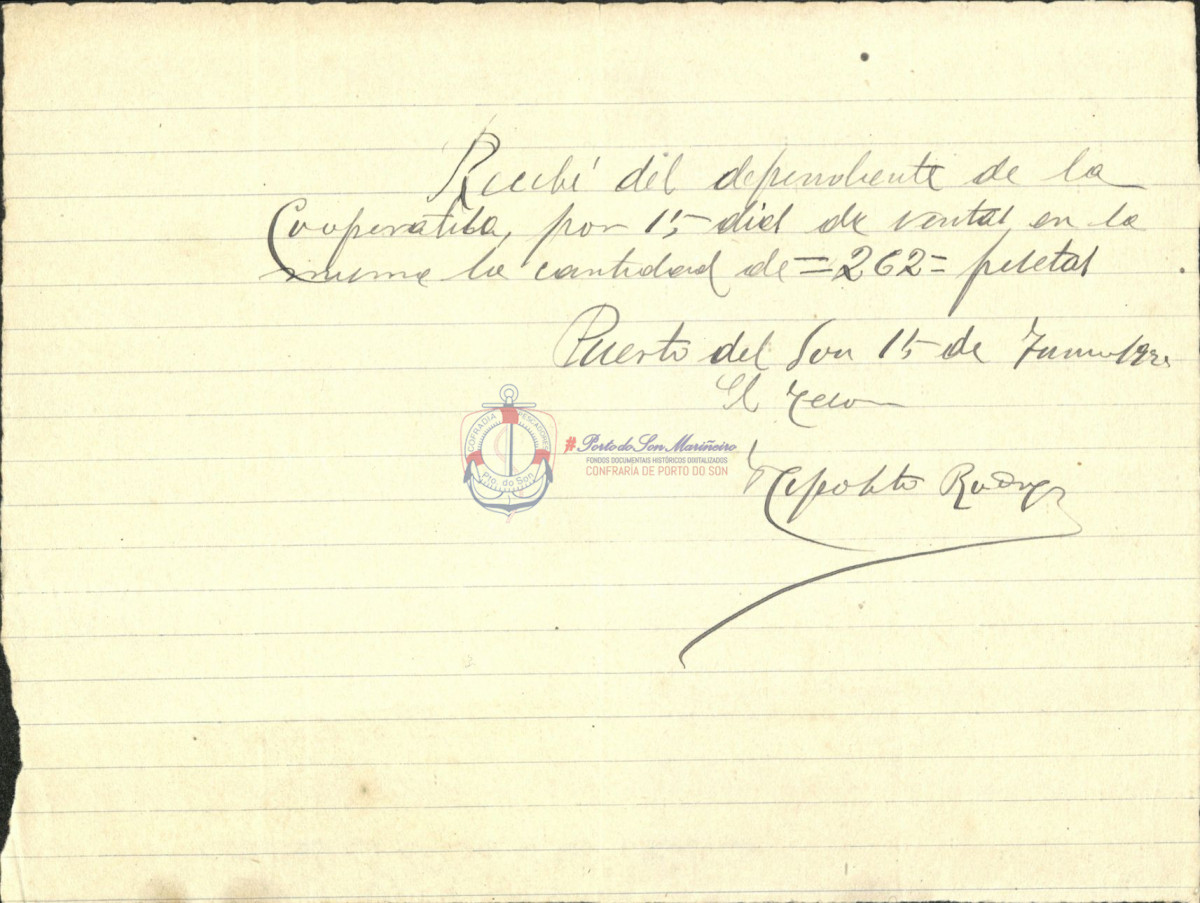 Recibí del dependiente de la
Cooperatiba, por 15 dias de ventas en la
misma la cantidad de =262= pesetas
Puerto del Son 15 de Junio
El
Hipolito Rodrgz
COFRADIA PESCADORES
Pto. do Son
#Porto do Son Mariñeiro
FONDOS DOCUMENTAIS HISTÓRICOS DIXITALIZADOS
CONFRARÍA DE PORTO DO SON